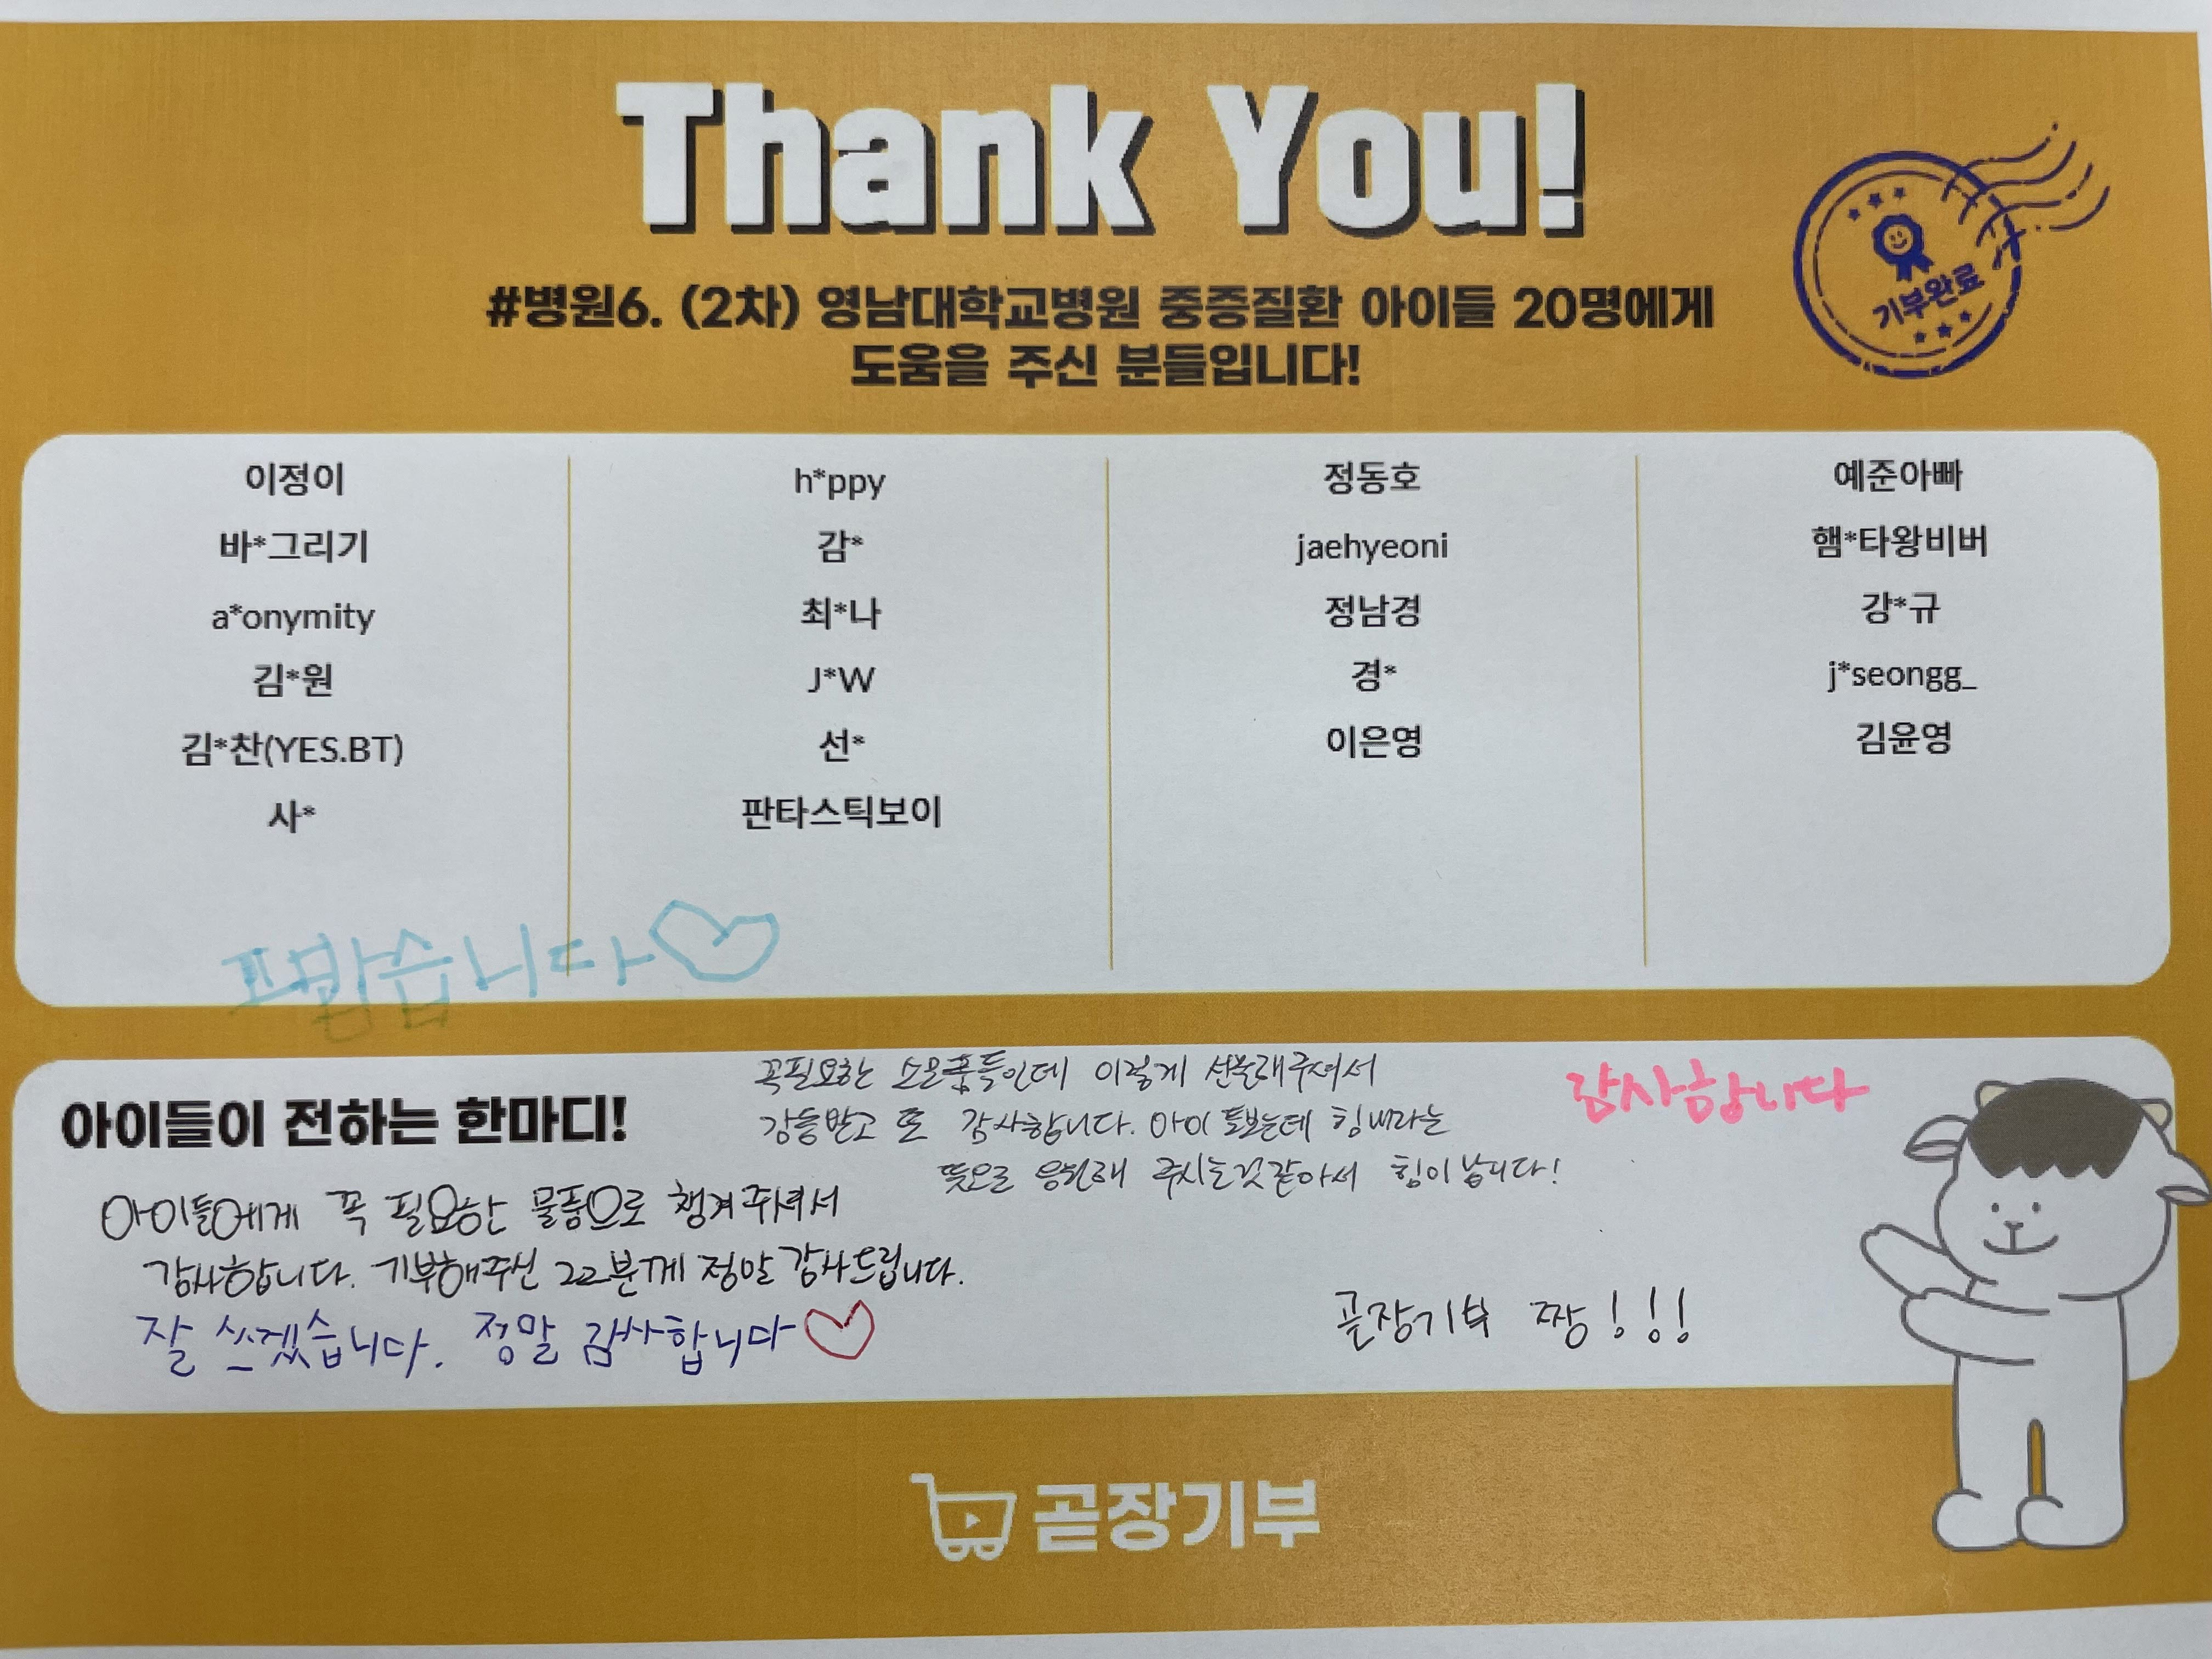 Thank You!
#병원6. (2차) 영남대학교병원 중증질환 아이들 20명에게
도움을 주신 분들입니다!
기부완료
이정이
바*그리기
a*onymity
김*원
김*찬(YES.BT)
사*
h*ppy
감*
최*나
J*W
선*
판타스틱보이
정동호
jaehyeoni
정남경
경*
이은영
예준아빠
햄*타왕비버
강*규
j*seongg_
김윤영
아이들이 전하는 한마디!
꼭필요한 소모품들인데 이렇게 선물해주셔서
감동받고 또 감사합니다. 아이 돌보는데 힘내라는
뜻으로 응원해 주시는것같아서 힘이 납니다!
감사합니다
아이들에게 꼭 필요한 물품으로 챙겨주셔서
감사합니다. 기부해주신 22분께 정말 감사드립니다.
잘 쓰겠습니다. 정말 감사합니다
곧장기부 짱!!!
곧장기부